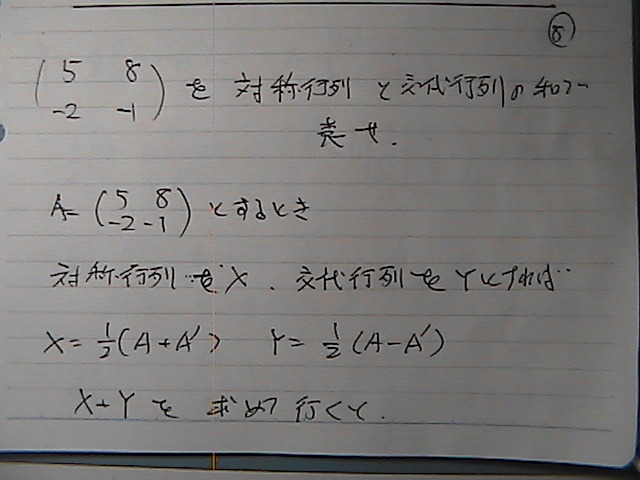 ⑧
(5 8
-2 -1) を 対称行列 と交代行列の和で
表せ.
A= (5 8
-2 -1) とするとき
対称行列をX、交代行列をYとすれば
X= 1/2 (A+A′) Y= 1/2 (A-A′)
X+Y を 求めて行くと.